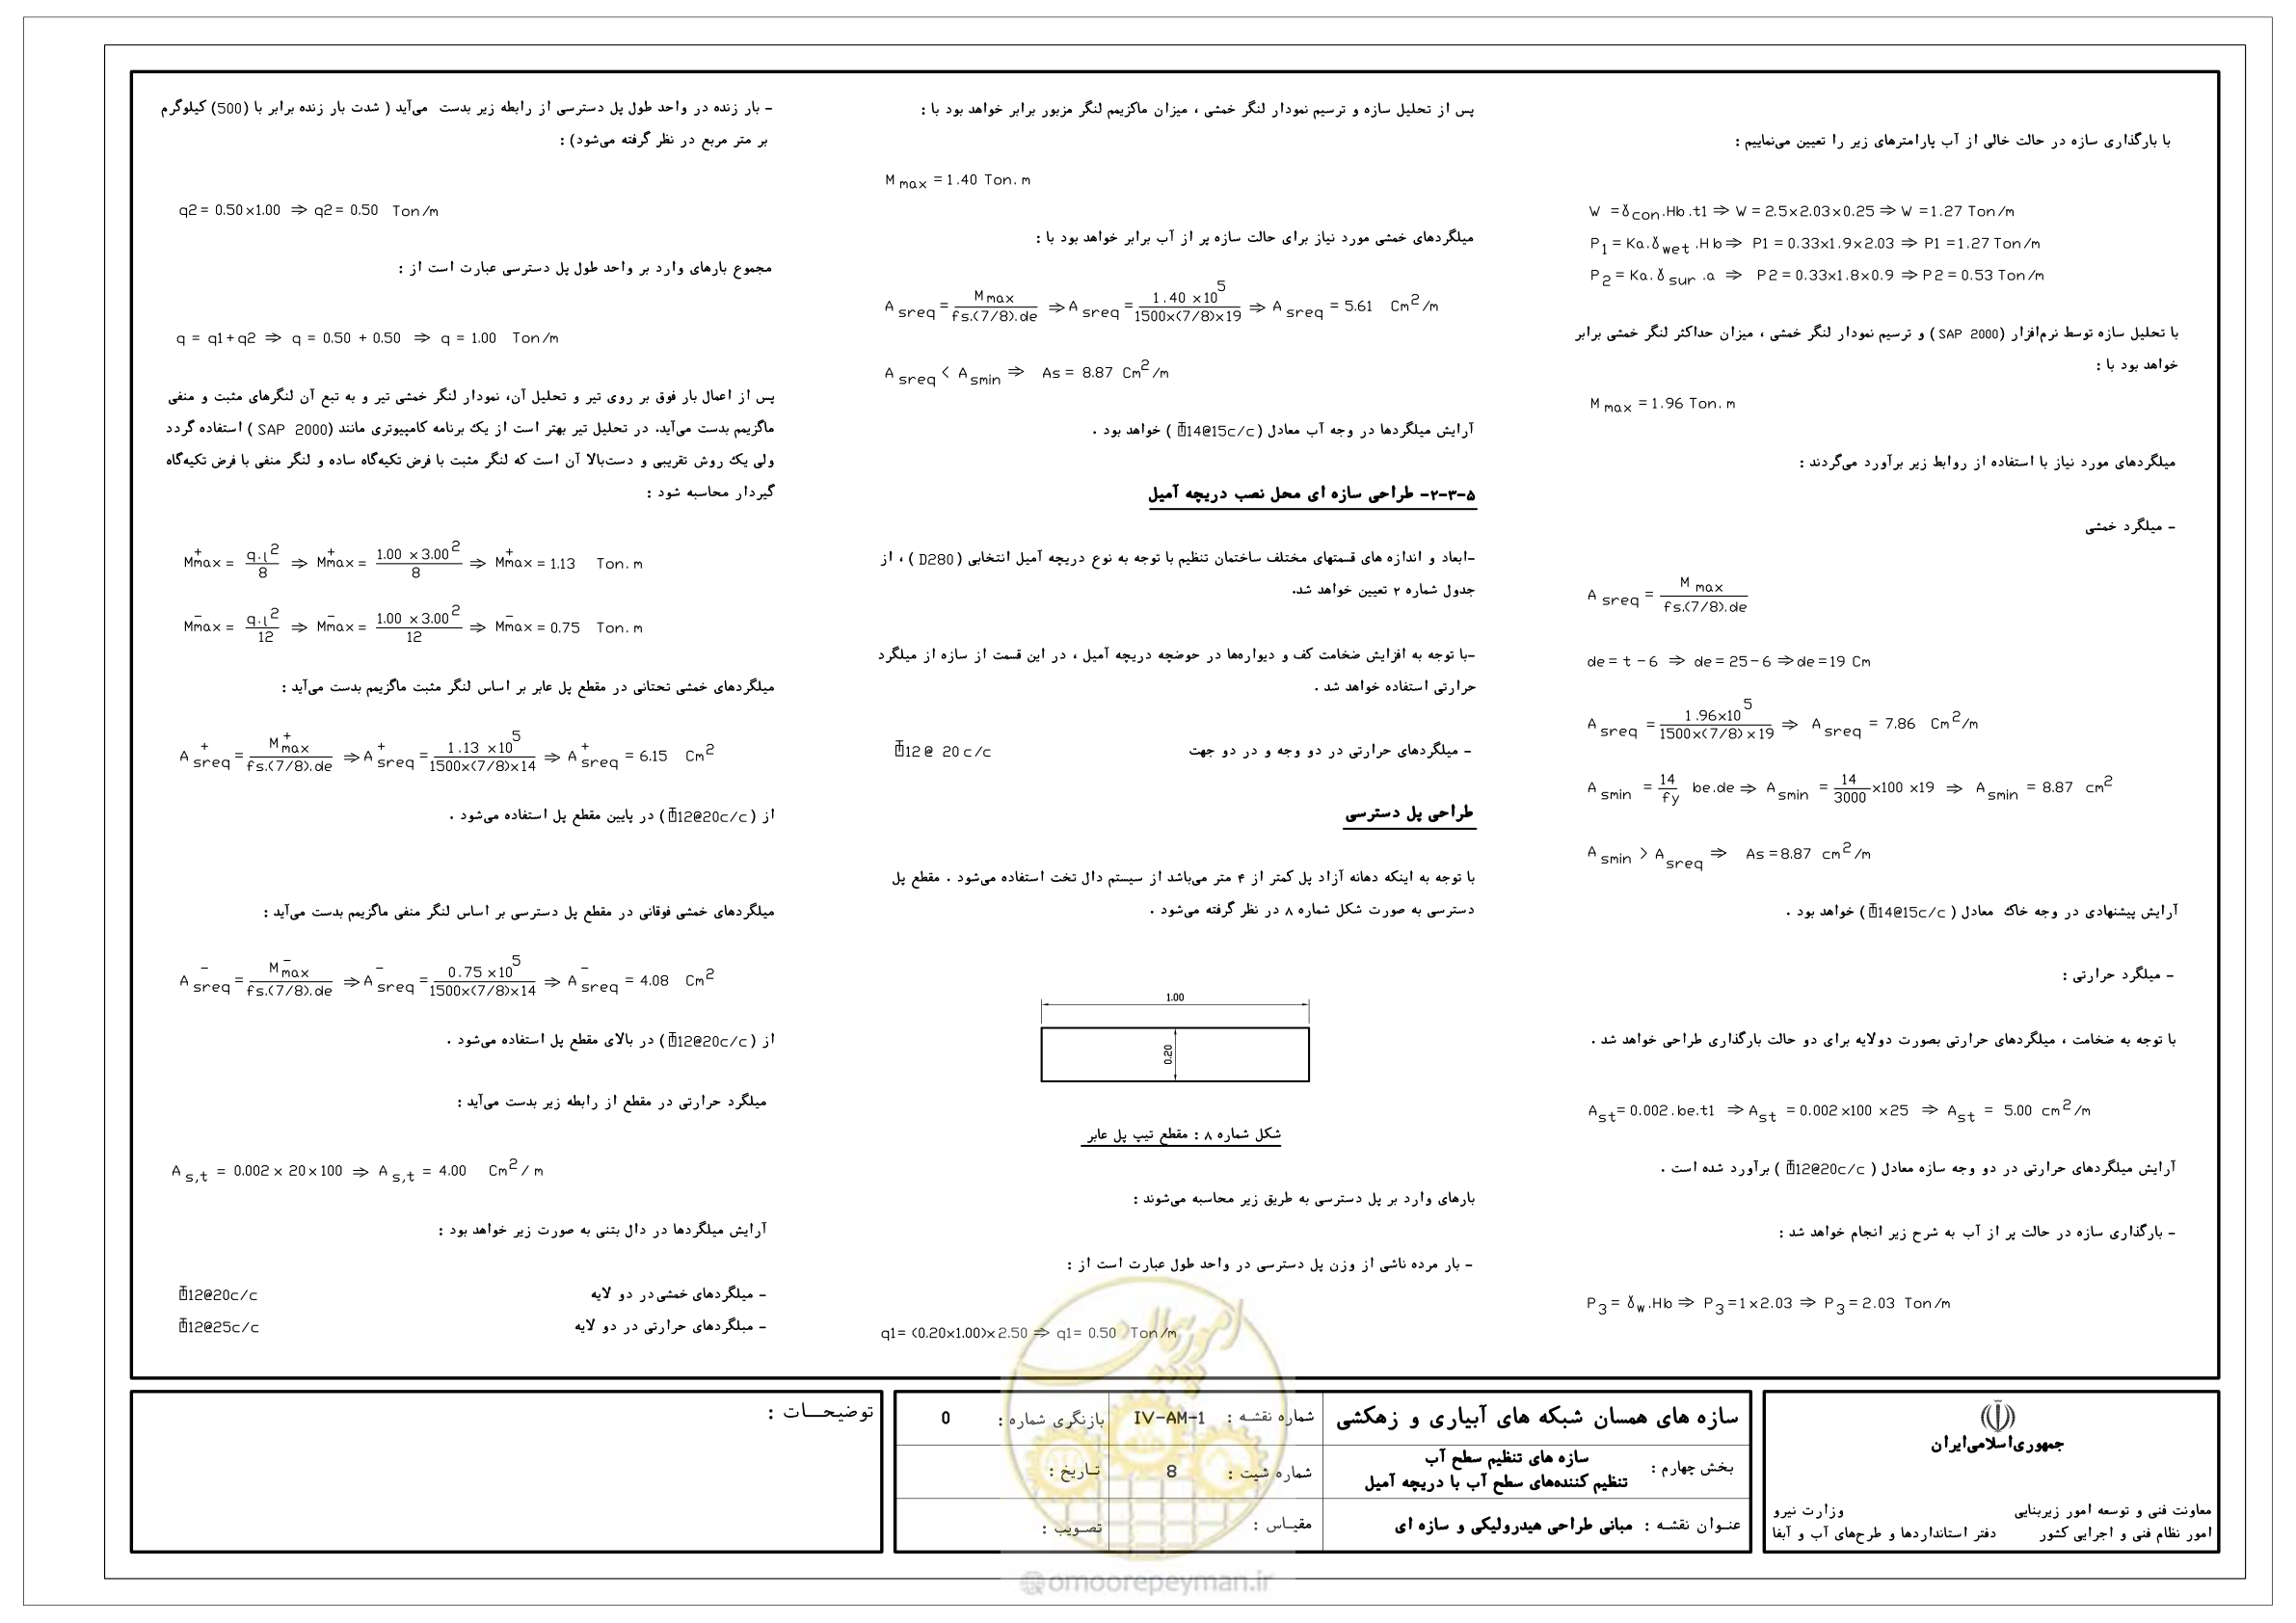 با بارگذاری سازه در حالت خالی از آب پارامترهای زیر را تعیین می‌نماییم :
W = γcon.Hb.t1 ⇒ W = 2.5×2.03×0.25 ⇒ W = 1.27 Ton/m
P1 = Ka.γwet.Hb ⇒ P1 = 0.33×1.9×2.03 ⇒ P1 = 1.27 Ton/m
P2 = Ka.γsur.a ⇒ P2 = 0.33×1.8×0.9 ⇒ P2 = 0.53 Ton/m
با تحلیل سازه توسط نرم‌افزار (SAP 2000) و ترسیم نمودار لنگر خمشی ، میزان حداکثر لنگر خمشی برابر
خواهد بود با :
Mmax = 1.96 Ton.m
میلگردهای مورد نیاز با استفاده از روابط زیر برآورد می‌گردند :
- میلگرد خمشی
Asreq = Mmax / fs.(7/8).de
de = t - 6 ⇒ de = 25-6 ⇒ de = 19 Cm
Asreq = 1.96×10^5 / 1500×(7/8)×19 ⇒ Asreq = 7.86 Cm²/m
Asmin = 14/fy be.de ⇒ Asmin = 14/3000 ×100 ×19 ⇒ Asmin = 8.87 cm²
Asmin > Asreq ⇒ As = 8.87 cm²/m
آرایش پیشنهادی در وجه خاک معادل (Φ14@15c/c) خواهد بود .
- میلگرد حرارتی :
با توجه به ضخامت ، میلگردهای حرارتی بصورت دولایه برای دو حالت بارگذاری طراحی خواهد شد .
Ast = 0.002.be.t1 ⇒ Ast = 0.002×100×25 ⇒ Ast = 5.00 cm²/m
آرایش میلگردهای حرارتی در دو وجه سازه معادل (Φ12@20c/c) برآورد شده است .
- بارگذاری سازه در حالت پر از آب به شرح زیر انجام خواهد شد :
P3 = γw.Hb ⇒ P3 = 1×2.03 ⇒ P3 = 2.03 Ton/m
پس از تحلیل سازه و ترسیم نمودار لنگر خمشی ، میزان ماکزیمم لنگر مزبور برابر خواهد بود با :
Mmax = 1.40 Ton.m
میلگردهای خمشی مورد نیاز برای حالت سازه پر از آب برابر خواهد بود با :
Asreq = Mmax / fs.(7/8).de ⇒ Asreq = 1.40×10^5 / 1500×(7/8)×19 ⇒ Asreq = 5.61 Cm²/m
Asreq < Asmin ⇒ As = 8.87 Cm²/m
آرایش میلگردها در وجه آب معادل (Φ14@15c/c) خواهد بود .
۵-۳-۲- طراحی سازه ای محل نصب دریچه آمیل
-ابعاد و اندازه های قسمتهای مختلف ساختمان تنظیم با توجه به نوع دریچه آمیل انتخابی (D280) ، از
جدول شماره ۲ تعیین خواهد شد.
-با توجه به افزایش ضخامت کف و دیواره‌ها در حوضچه دریچه آمیل ، در این قسمت از سازه از میلگرد
حرارتی استفاده خواهد شد .
- میلگردهای حرارتی در دو وجه و در دو جهت Φ12 @ 20 c/c
طراحی پل دسترسی
با توجه به اینکه دهانه آزاد پل کمتر از ۴ متر می‌باشد از سیستم دال تخت استفاده می‌شود . مقطع پل
دسترسی به صورت شکل شماره ۸ در نظر گرفته می‌شود .
1.00
0.20
شکل شماره ۸ : مقطع تیپ پل عابر
بارهای وارد بر پل دسترسی به طریق زیر محاسبه می‌شوند :
- بار مرده ناشی از وزن پل دسترسی در واحد طول عبارت است از :
q1 = (0.20×1.00)×2.50 ⇒ q1 = 0.50 Ton/m
- بار زنده در واحد طول پل دسترسی از رابطه زیر بدست می‌آید ( شدت بار زنده برابر با (500) کیلوگرم
بر متر مربع در نظر گرفته می‌شود) :
q2 = 0.50×1.00 ⇒ q2 = 0.50 Ton/m
مجموع بارهای وارد بر واحد طول پل دسترسی عبارت است از :
q = q1+q2 ⇒ q = 0.50 + 0.50 ⇒ q = 1.00 Ton/m
پس از اعمال بار فوق بر روی تیر و تحلیل آن، نمودار لنگر خمشی تیر و به تبع آن لنگرهای مثبت و منفی
ماگزیمم بدست می‌آید. در تحلیل تیر بهتر است از یک برنامه کامپیوتری مانند (SAP 2000) استفاده گردد
ولی یک روش تقریبی و دست‌بالا آن است که لنگر مثبت با فرض تکیه‌گاه ساده و لنگر منفی با فرض تکیه‌گاه
گیردار محاسبه شود :
M+max = q.l²/8 ⇒ M+max = 1.00 ×3.00²/8 ⇒ M+max = 1.13 Ton.m
M-max = q.l²/12 ⇒ M-max = 1.00 ×3.00²/12 ⇒ M-max = 0.75 Ton.m
میلگردهای خمشی تحتانی در مقطع پل عابر بر اساس لنگر مثبت ماگزیمم بدست می‌آید :
A+sreq = M+max / fs.(7/8).de ⇒ A+sreq = 1.13×10^5 / 1500×(7/8)×14 ⇒ A+sreq = 6.15 Cm²
از (Φ12@20c/c) در پایین مقطع پل استفاده می‌شود .
میلگردهای خمشی فوقانی در مقطع پل دسترسی بر اساس لنگر منفی ماگزیمم بدست می‌آید :
A-sreq = M-max / fs.(7/8).de ⇒ A-sreq = 0.75×10^5 / 1500×(7/8)×14 ⇒ A-sreq = 4.08 Cm²
از (Φ12@20c/c) در بالای مقطع پل استفاده می‌شود .
میلگرد حرارتی در مقطع از رابطه زیر بدست می‌آید :
As,t = 0.002 × 20×100 ⇒ As,t = 4.00 Cm²/m
آرایش میلگردها در دال بتنی به صورت زیر خواهد بود :
- میلگردهای خمشی در دو لایه Φ12@20c/c
- مبلگردهای حرارتی در دو لایه Φ12@25c/c
جمهوری اسلامی ایران
معاونت فنی و توسعه امور زیربنایی
امور نظام فنی و اجرایی کشور
وزارت نیرو
دفتر استانداردها و طرح‌های آب و آبفا
سازه های همسان شبکه های آبیاری و زهکشی
بخش چهارم : سازه های تنظیم سطح آب
تنظیم کننده‌های سطح آب با دریچه آمیل
عنـوان نقشـه : مبانی طراحی هیدرولیکی و سازه ای
شماره نقشـه : IV-AM-1
شماره شیت : 8
مقیـاس :
بازنگری شماره : 0
تـاریخ :
تصـویب :
توضیحـــات :
امورپیمان
@omoorepeyman.ir